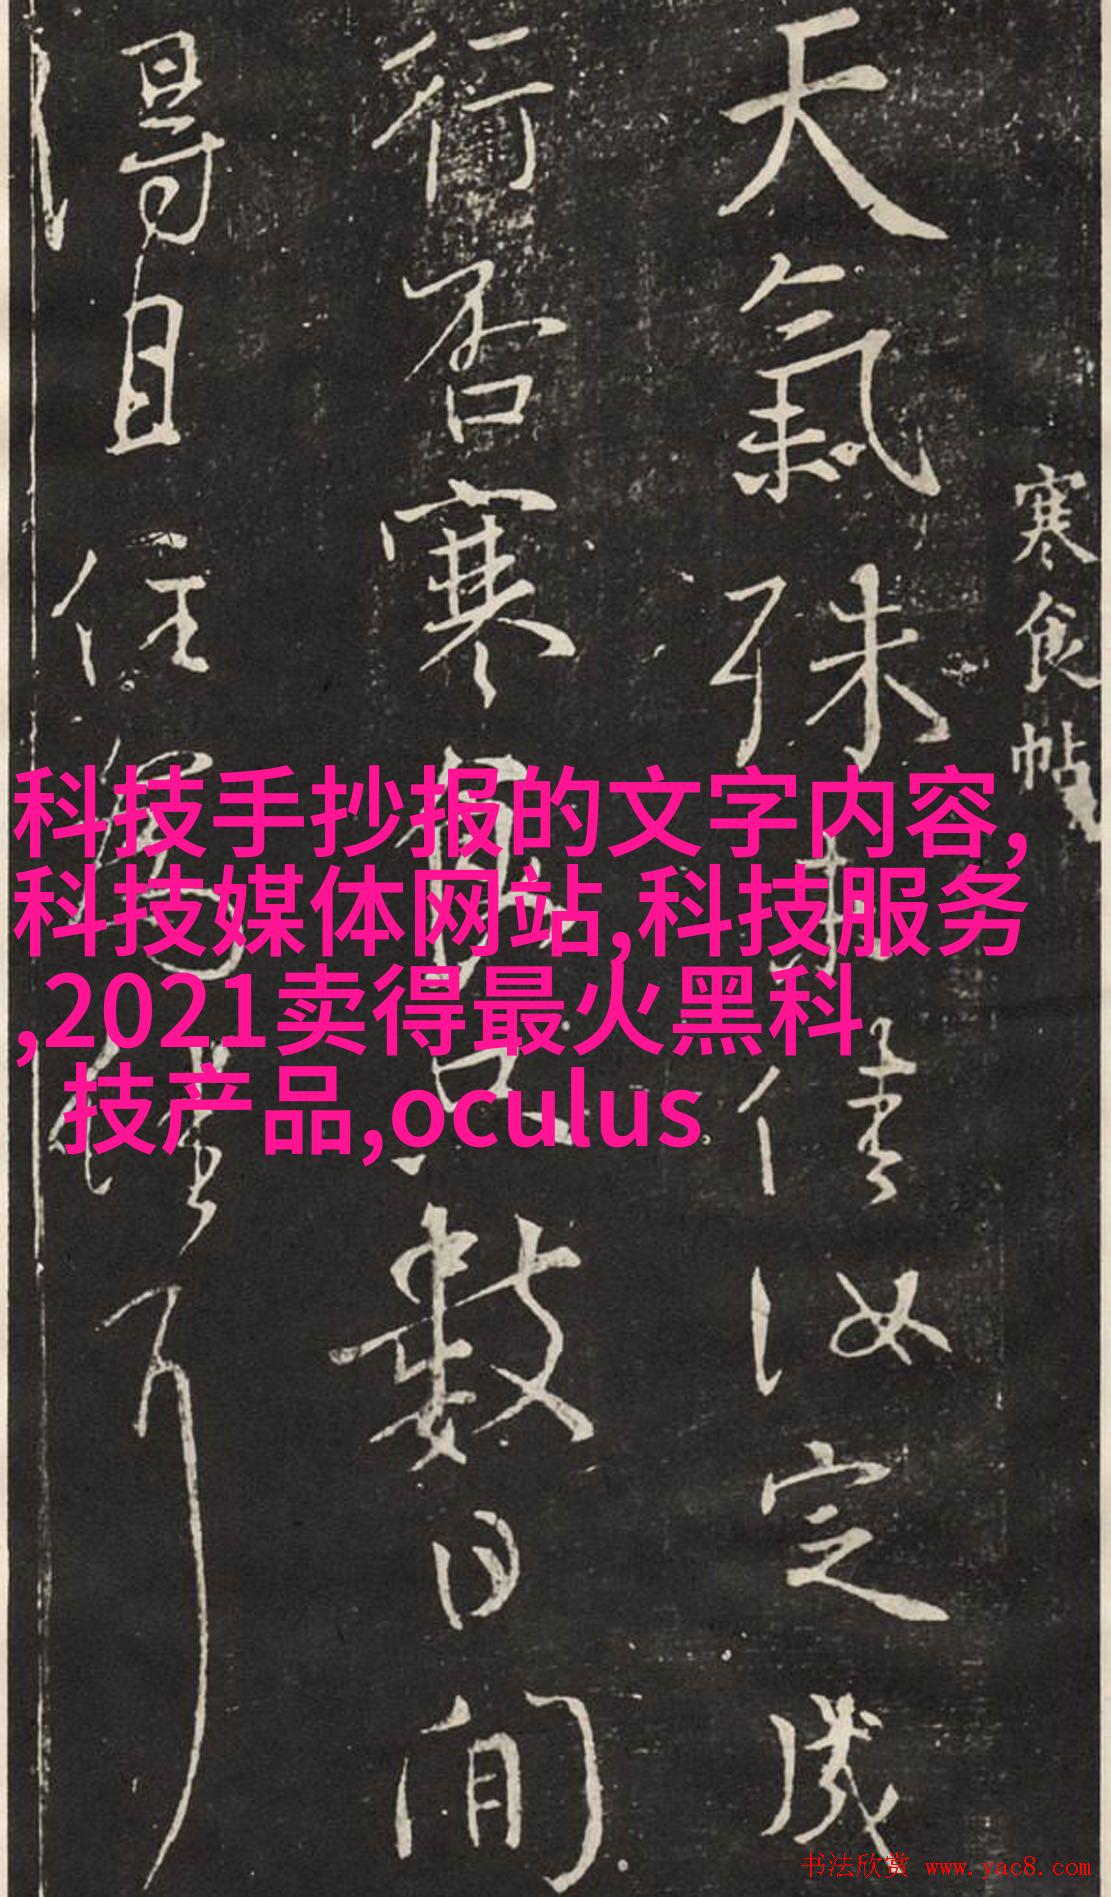 寒食帖
天氣殊未佳汝定成
行否寒食只數日間
得且住為佳耳
科技手抄报的文字内容,
科技媒体网站,科技服务
,2021卖得最火黑科
技产品,oculus
书法欣赏 www.yac8.com